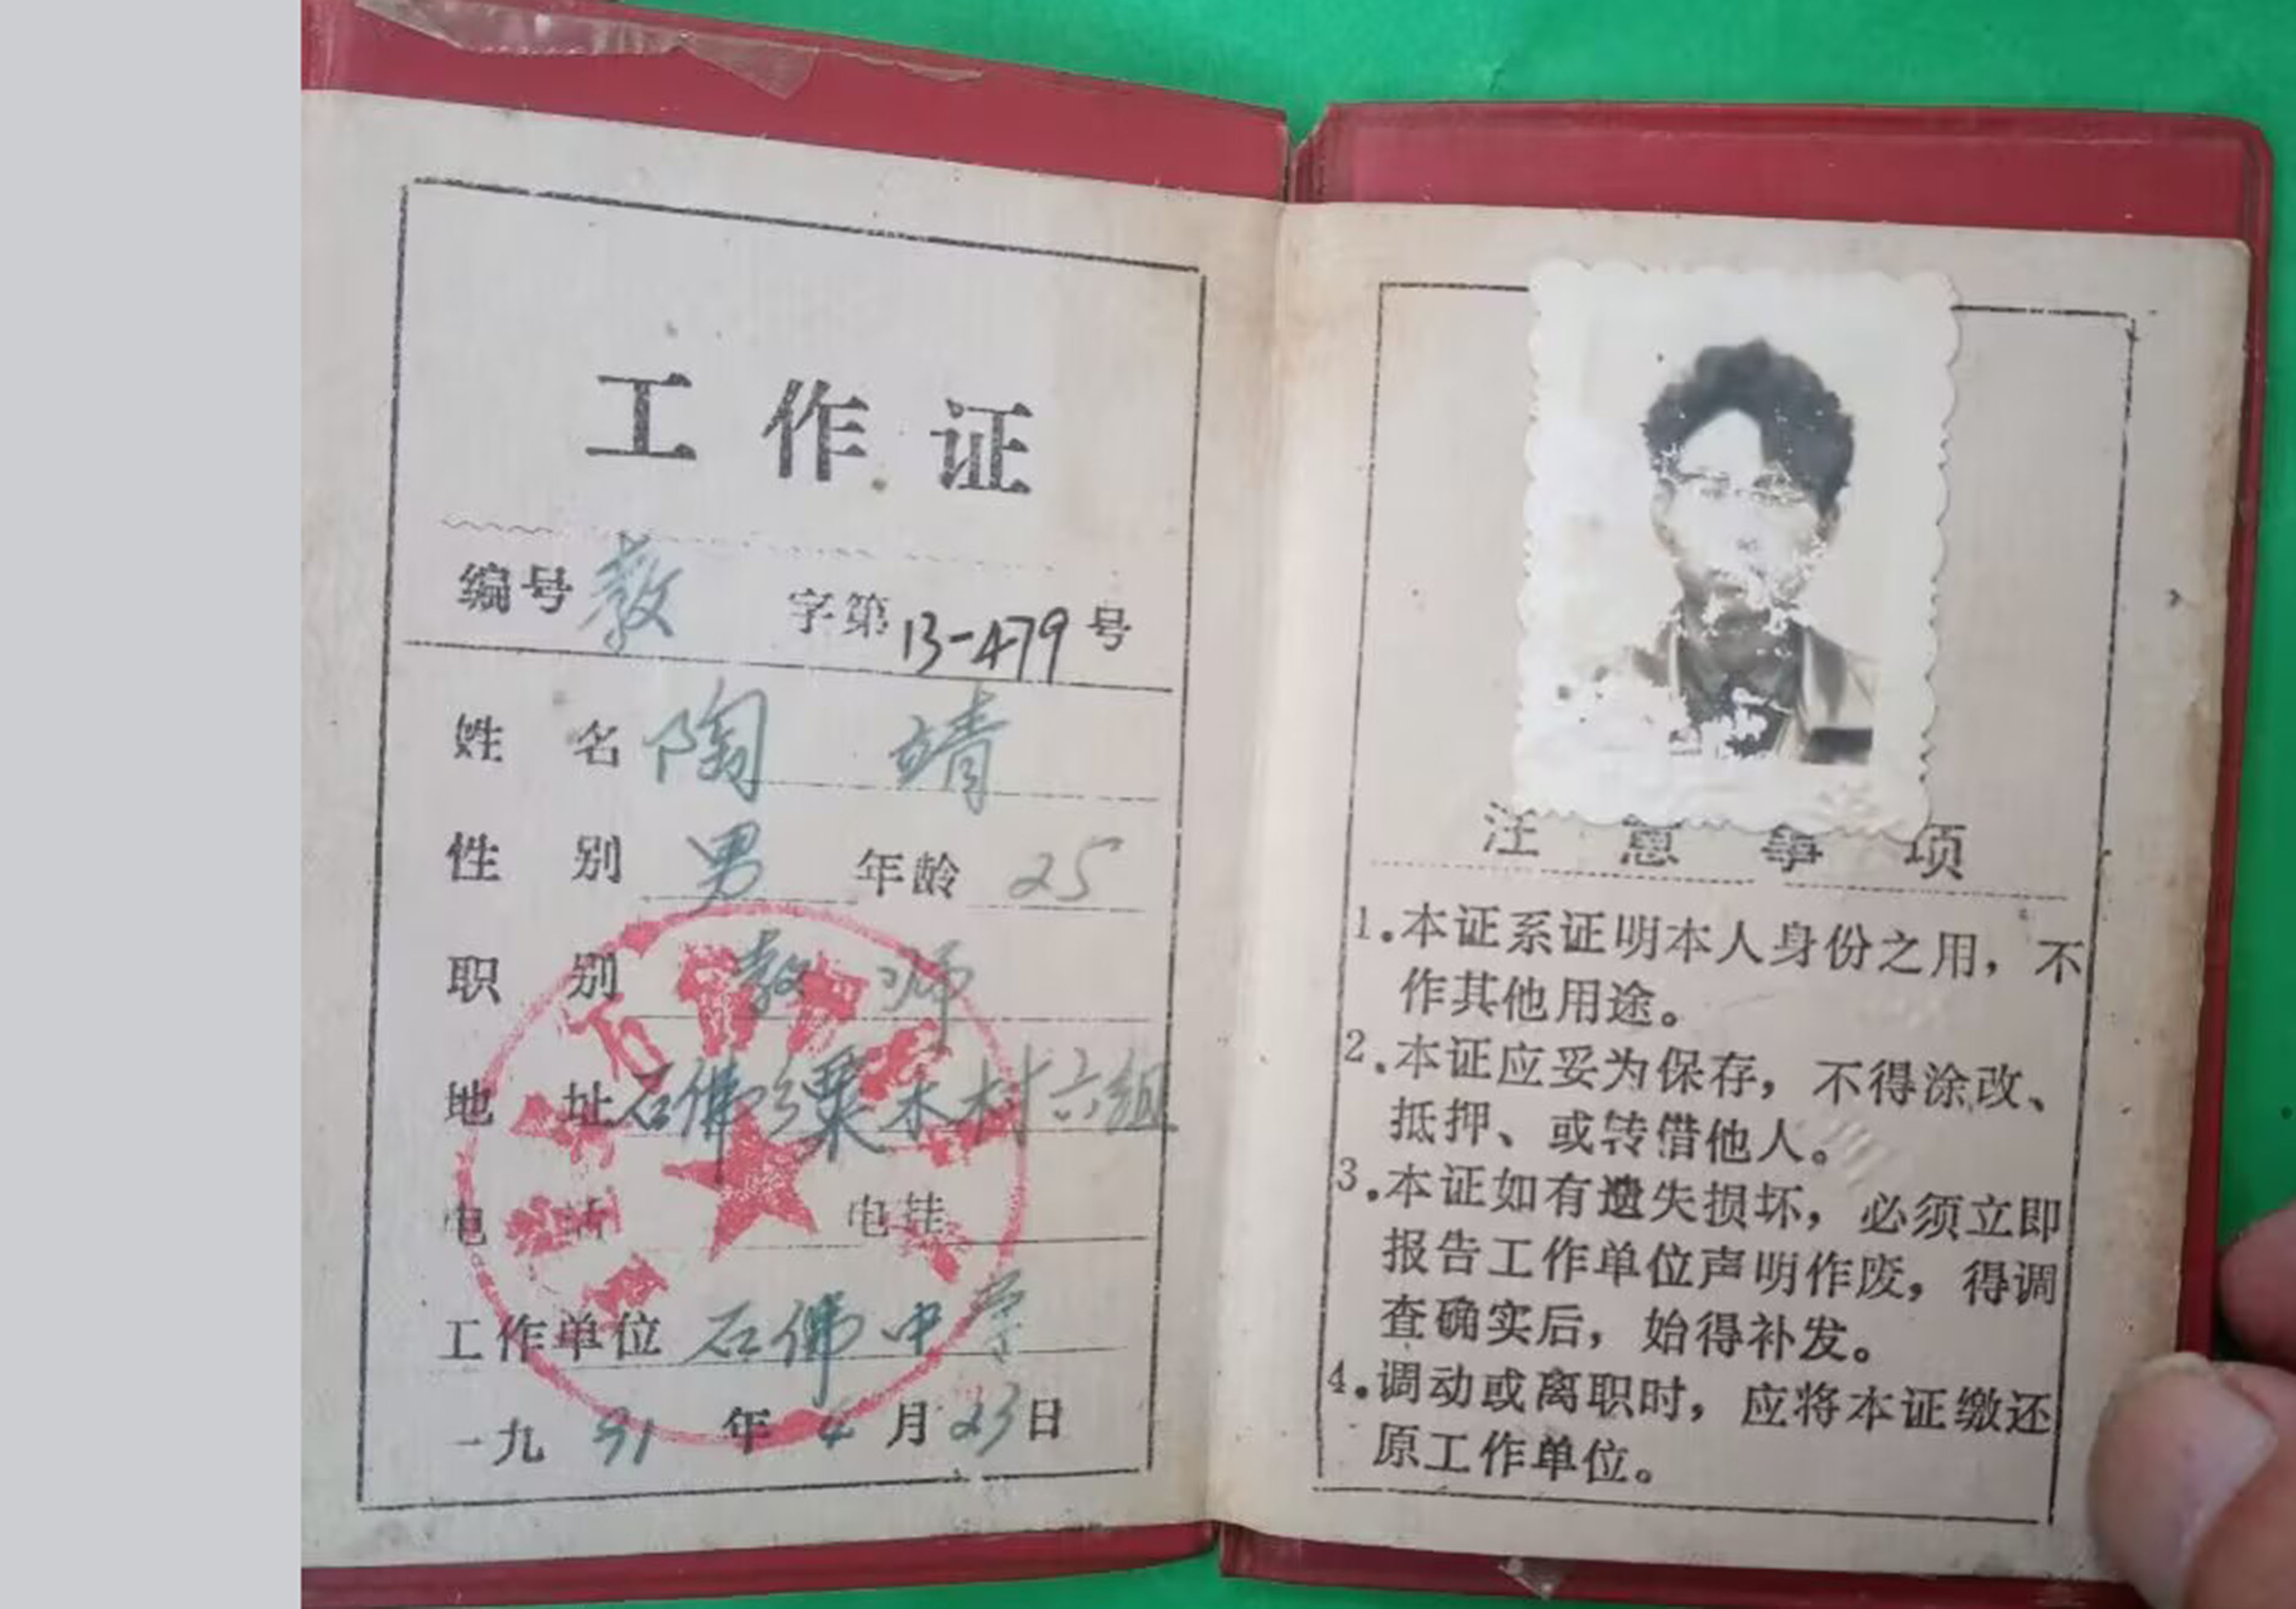 工作证
编号教 字第13-479号
姓名 陶靖
性别 男 年龄 25
职别 教师
地址 石佛乡栗木村六组
电话 电挂
工作单位 石佛中学
一九91年4月23日
注意事项
1.本证系证明本人身份之用，不
作其他用途。
2.本证应妥为保存，不得涂改、
抵押、或转借他人。
3.本证如有遗失损坏，必须立即
报告工作单位声明作废，得调
查确实后，始得补发。
4.调动或离职时，应将本证缴还
原工作单位。